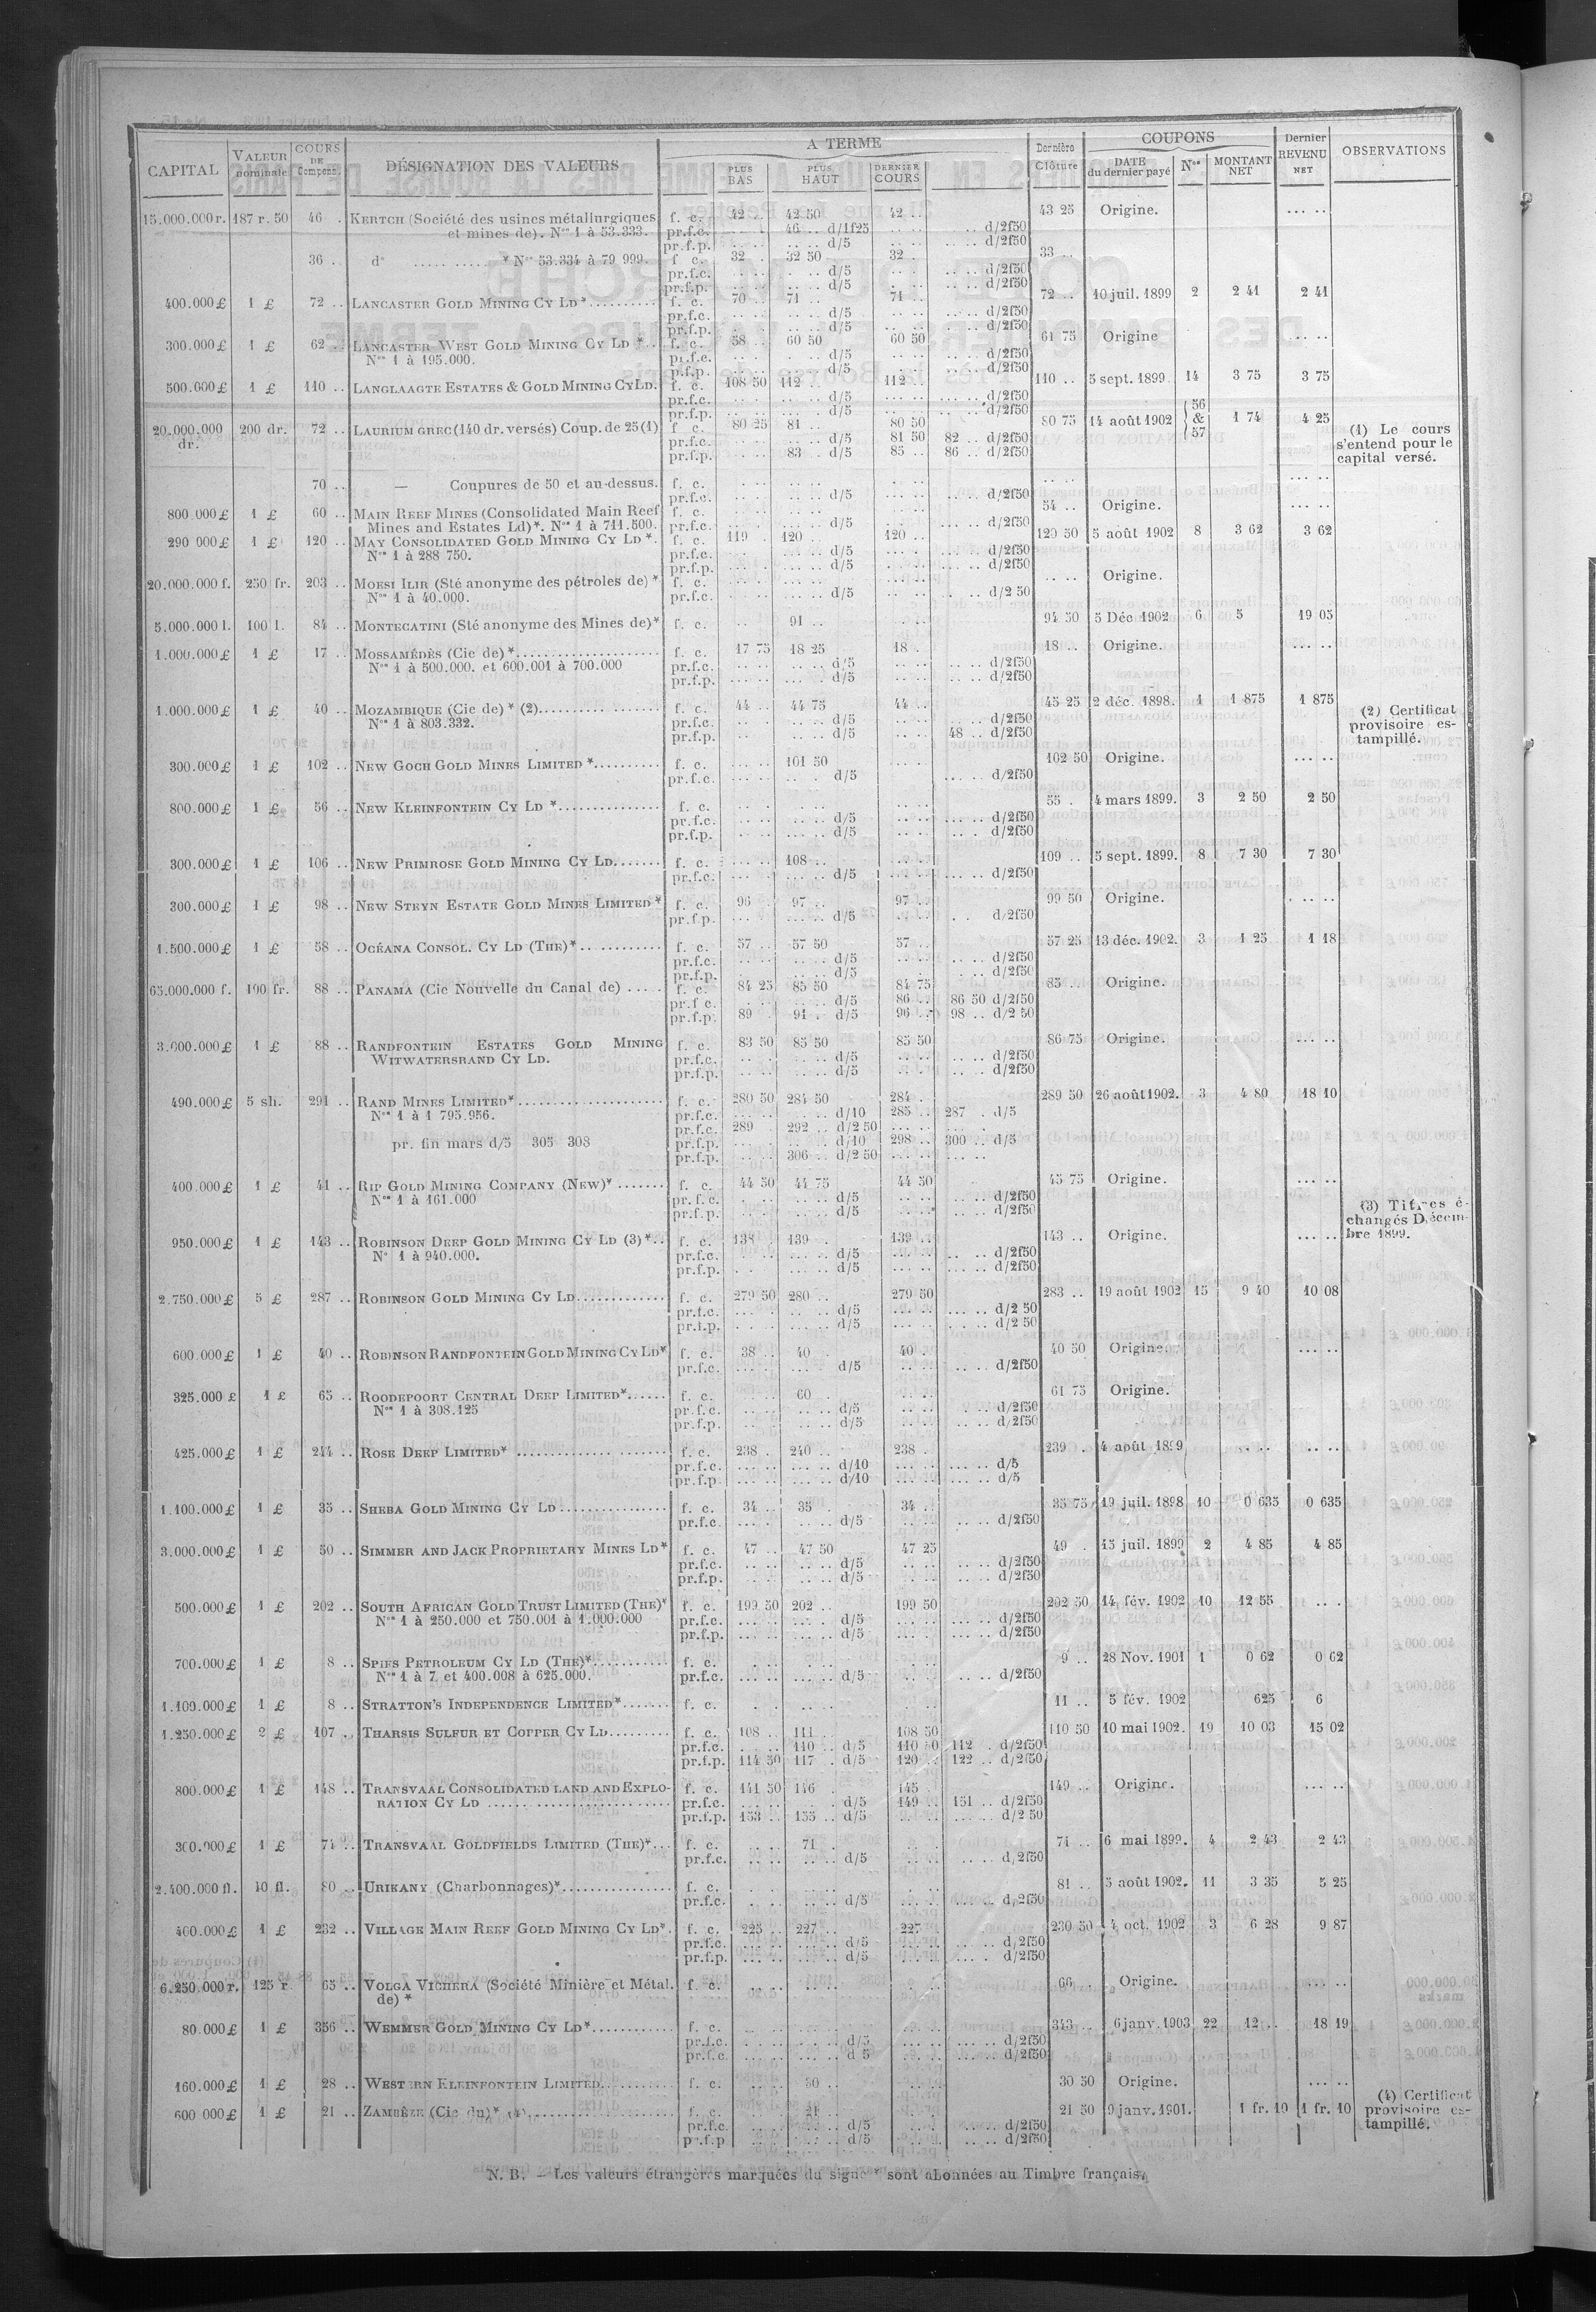 CAPITAL | VALEUR nominale | COURS DE Compens. | DÉSIGNATION DES VALEURS | A TERME | PLUS BAS | PLUS HAUT | DERNIER COURS | Dernière Clôture | COUPONS | DATE du dernier payé | Nos | MONTANT NET | Dernier REVENU NET | OBSERVATIONS
15.000.000 r. 187 r. 50 46 . KERTCH (Société des usines métallurgiques f. c. 42 .. 42 50 42 .. 43 25 Origine. ... ..
et mines de). Nos 1 à 53.333. pr.f.c. 46 .. d/1f25 d/2f50
pr.f.p. d/5 d/2f50
36 .. do * Nos 53.334 à 79 999. f c. 32 . 32 50 32 .. 33 ..
pr.f.c. d/5 d/2f50
pr.f.p. d/5 d/2f50
400.000 £ 1 £ 72 .. LANCASTER GOLD MINING CY LD* f. c. 70 .. 71 .. 71 .. 72 .. 10 juil. 1899 2 2 41 2 41
pr.f.c. d/5 d/2f50
pr.f.p. d/5 d/2f50
300.000 £ 1 £ 62 .. LANCASTER WEST GOLD MINING CY LD *.. f. c. 58 .. 60 50 60 50 61 75 Origine ... ..
Nos 1 à 195.000. pr.f.c. d/5 d/2f50
pr.f.p. d/5 d/2f50
500.000 £ 1 £ 110 .. LANGLAAGTE ESTATES & GOLD MINING CY LD. f. c. 108 50 112 .. 112 .. 110 .. 5 sept. 1899 14 3 75 3 75
pr.f.c. d/5 d/2f50
pr.f.p. d/5 d/2f50
20.000.000 dr. 200 dr. 72 .. LAURIUM GREC (140 dr. versés) Coup. de 25 (1) f c. 80 25 81 .. 80 50 80 75 14 août 1902 56 & 57 1 74 4 25 (1) Le cours s'entend pour le capital versé.
pr.f.c. d/5 81 50 82 .. d/2f50
pr.f.p. 83 .. d/5 85 .. 86 .. d/2f50
70 .. — Coupures de 50 et au-dessus. f. c.
pr.f.c. d/5 d/2f50
800 000 £ 1 £ 60 .. MAIN REEF MINES (Consolidated Main Reef f. c. 54 .. Origine. ... ..
Mines and Estates Ld)*. Nos 1 à 711.500. pr.f.c. d/5 d/2f50
290 000 £ 1 £ 120 .. MAY CONSOLIDATED GOLD MINING CY LD *. f. c. 119 . 120 .. 120 .. 120 50 5 août 1902 8 3 62 3 62
Nos 1 à 288 750. pr.f.c. d/5 d/2f50
pr.f.p. d/5 d/2f50
20.000.000 f. 250 fr. 203 .. MOESI ILIR (Sté anonyme des pétroles de) * f. c. Origine.
Nos 1 à 40.000. pr.f.c. d/5 d/2 50
5.000.000 l. 100 l. 84 .. MONTECATINI (Sté anonyme des Mines de)* f. c. 91 .. 94 50 5 Déc 1902 6 5 19 05
1.000.000 £ 1 £ 17 .. MOSSAMÉDÈS (Cie de) * f. c. 17 75 18 25 18 . 18 .. Origine. ... ..
Nos 1 à 500.000. et 600.001 à 700.000 pr.f.c. d/5 d/2f50
pr.f.p. d/5 d/2f50
1.000.000 £ 1 £ 40 .. MOZAMBIQUE (Cie de) * (2) f. c. 44 .. 44 75 44 .. 45 25 2 déc. 1898. 1 1 875 1 875 (2) Certificat provisoire estampillé.
Nos 1 à 803.332. pr.f.c. d/5 d/2f50
pr.f.p. d/5 48 .. d/2f50
300.000 £ 1 £ 102 .. NEW GOCH GOLD MINES LIMITED * f. c. 101 50 102 50 Origine. ... ..
pr.f.c. d/5 d/2f50
800.000 £ 1 £ 56 .. NEW KLEINFONTEIN CY LD * f. c. 55 . 4 mars 1899. 3 2 50 2 50
pr.f.c. d/5 d/2f50
pr.f.p. d/5 d/2f50
300.000 £ 1 £ 106 .. NEW PRIMROSE GOLD MINING CY LD. f. c. 108 .. 109 .. 5 sept. 1899. 8 7 30 7 30
pr.f.c. d/5 d/2f50
300.000 £ 1 £ 98 .. NEW STEYN ESTATE GOLD MINES LIMITED * f. c. 96 . 97 .. 97 .. 99 50 Origine. ... ..
pr.f.p. d/5 d/2f50
1.500.000 £ 1 £ 58 .. OCÉANA CONSOL. CY LD (THE) * f. c. 57 .. 57 50 57 .. 57 25 13 déc. 1902. 3 1 25 1 18
pr.f.c. d/5 d/2f50
pr.f.p. d/5 d/2f50
65.000.000 f. 100 fr. 88 .. PANAMA (Cie Nouvelle du Canal de) f. c. 84 25 85 50 84 75 85 .. Origine.
pr.f c. d/5 86 .. 86 50 d/2f50
pr.f.p. 89 . 91 .. d/5 96 .. 98 .. d/2 50
3.000.000 £ 1 £ 88 .. RANDFONTEIN ESTATES GOLD MINING f. c. 83 50 85 50 85 50 86 75 Origine. ... ..
WITWATERSRAND CY LD. pr.f.c. d/5 d/2f50
pr.f.p. d/5 d/2f50
490.000 £ 5 sh. 291 .. RAND MINES LIMITED* f. c. 280 50 284 50 284 .. 289 50 26 août 1902. 3 4 80 18 10
Nos 1 à 1 795.956. pr.f.c. d/10 285 .. 287 . d/5
pr.f.c. 289 292 .. d/2 50
pr. fin mars d/5 305 308 pr.f.p. d/10 298 .. 300 .. d/5
pr.f.p. 306 .. d/2 50
400.000 £ 1 £ 41 .. RIP GOLD MINING COMPANY (NEW)* f. c. 44 50 44 75 44 50 45 75 Origine. ... ..
Nos 1 à 161.000 pr. f. c. d/5 d/2f50
pr.f.p. d/5 d/2f50
(3) Titres échangés Décembre 1899.
950.000 £ 1 £ 143 .. ROBINSON DEEP GOLD MINING CY LD (3) *.. f. c. 138 . 139 . 139 .. 143 .. Origine. ... ..
No 1 à 940.000. pr.f.c. d/5 d/2f50
pr.f.p. d/5 d/2f50
2.750.000 £ 5 £ 287 .. ROBINSON GOLD MINING CY LD f. c. 279 50 280 .. 279 50 283 .. 19 août 1902 15 9 40 10 08
pr.f.c. d/5 d/2 50
pr.f.p. d/5 d/2 50
600.000 £ 1 £ 40 .. ROBINSON RANDFONTEIN GOLD MINING CY LD* f. c. 38 .. 40 . 40 .. 40 50 Origine. ... ..
pr.f.c. d/5 d/2f50
325.000 £ 1 £ 65 .. ROODEPOORT CENTRAL DEEP LIMITED* f. c. 60 . 61 75 Origine.
Nos 1 à 308.125 pr.f.c. d/5 d/2f50
pr.f.p. d/5 d/2f50
425.000 £ 1 £ 244 .. ROSE DEEP LIMITED* f. c. 238 . 240 .. 238 . 239 . 4 août 1899 ... ..
pr.f.c. d/10 d/5
pr.f.p. d/10 d/5
1.100.000 £ 1 £ 35 .. SHEBA GOLD MINING CY LD f. c. 34 .. 35 . 34 .. 35 75 19 juil. 1898 10 0 635 0 635
pr.f.c. d/5 d/2f50
3.000.000 £ 1 £ 50 .. SIMMER AND JACK PROPRIETARY MINES LD* f. c. 47 .. 47 50 47 25 49 . 15 juil. 1899 2 4 85 4 85
pr.f.c. d/5 d/2f50
pr.f.p. d/5 d/2f50
500.000 £ 1 £ 202 .. SOUTH AFRICAN GOLD TRUST LIMITED (THE)* f. c. 199 50 202 .. 199 50 202 50 14 fév. 1902 10 12 55
Nos 1 à 250.000 et 750.001 à 1.000.000 pr.f.c. d/5 d/2f50
pr.f.p. d/5 d/2f50
700.000 £ 1 £ 8 .. SPIES PETROLEUM CY LD (THE)* f. c. 9 .. 28 Nov. 1901 1 0 62 0 62
Nos 1 à 7 et 400.008 à 625.000. pr.f.c. d/5 d/2f50
1.100.000 £ 1 £ 8 .. STRATTON'S INDEPENDENCE LIMITED* f. c. 11 .. 5 fév. 1902 625 6
1.250.000 £ 2 £ 107 .. THARSIS SULFUR ET COPPER CY LD f. c. 108 .. 111 . 108 50 110 50 10 mai 1902. 19 10 03 15 02
pr.f.c. 110 .. d/5 110 50 112 . d/2f50
pr.f.p. 114 50 117 . d/5 120 .. 122 .. d/2f50
800.000 £ 1 £ 148 .. TRANSVAAL CONSOLIDATED LAND AND EXPLO- f. c. 141 50 146 145 149 .. Origine. ... ..
RATION CY LD pr.f.c. d/5 149 .. 151 .. d/2f50
pr.f.p. 153 .. 155 .. d/5 d/2 50
300.000 £ 1 £ 74 .. TRANSVAAL GOLDFIELDS LIMITED (THE)* f. c. 71 . 71 .. 6 mai 1899. 4 2 43 2 43
pr.f.c. d/5 d/2f50
2.400.000 fl. 10 fl. 80 .. URIKANY (Charbonnages)* f. c. 81 .. 5 août 1902. 11 3 35 5 25
pr.f.c. d/5 d/2f50
400.000 £ 1 £ 232 .. VILLAGE MAIN REEF GOLD MINING CY LD*. f. c. 225 .. 227 .. 227 . 230 50 4 oct. 1902 3 6 28 9 87
pr.f.c. d/5 d/2f50
pr.f.p. d/5 d/2f50
6.250.000 r. 125 r. 65 .. VOLGA VICHERA (Société Minière et Métal. f. c. 66 .. Origine. ... ..
de) *
80.000 £ 1 £ 356 .. WEMMER GOLD MINING CY LD* f. c. 343 .. 6 janv. 1903 22 12 .. 18 19
pr.f.c. d/5 d/2f50
pr.f.c. d 5 d/2f50
160.000 £ 1 £ 28 .. WESTERN KLEINFONTEIN LIMITED f. c. 30 .. 30 50 Origine. ... ..
600 000 £ 1 £ 21 .. ZAMBÈZE (Cie du)* (4) f. c. 21 .. 21 50 9 janv. 1901. 1 fr. 10 1 fr. 10 (4) Certificat provisoire estampillé.
pr.f.c. d/5 d/2f50
pr.f.p d/5 d/2f50
N. B. — Les valeurs étrangères marquées du signe * sont abonnées au Timbre français.